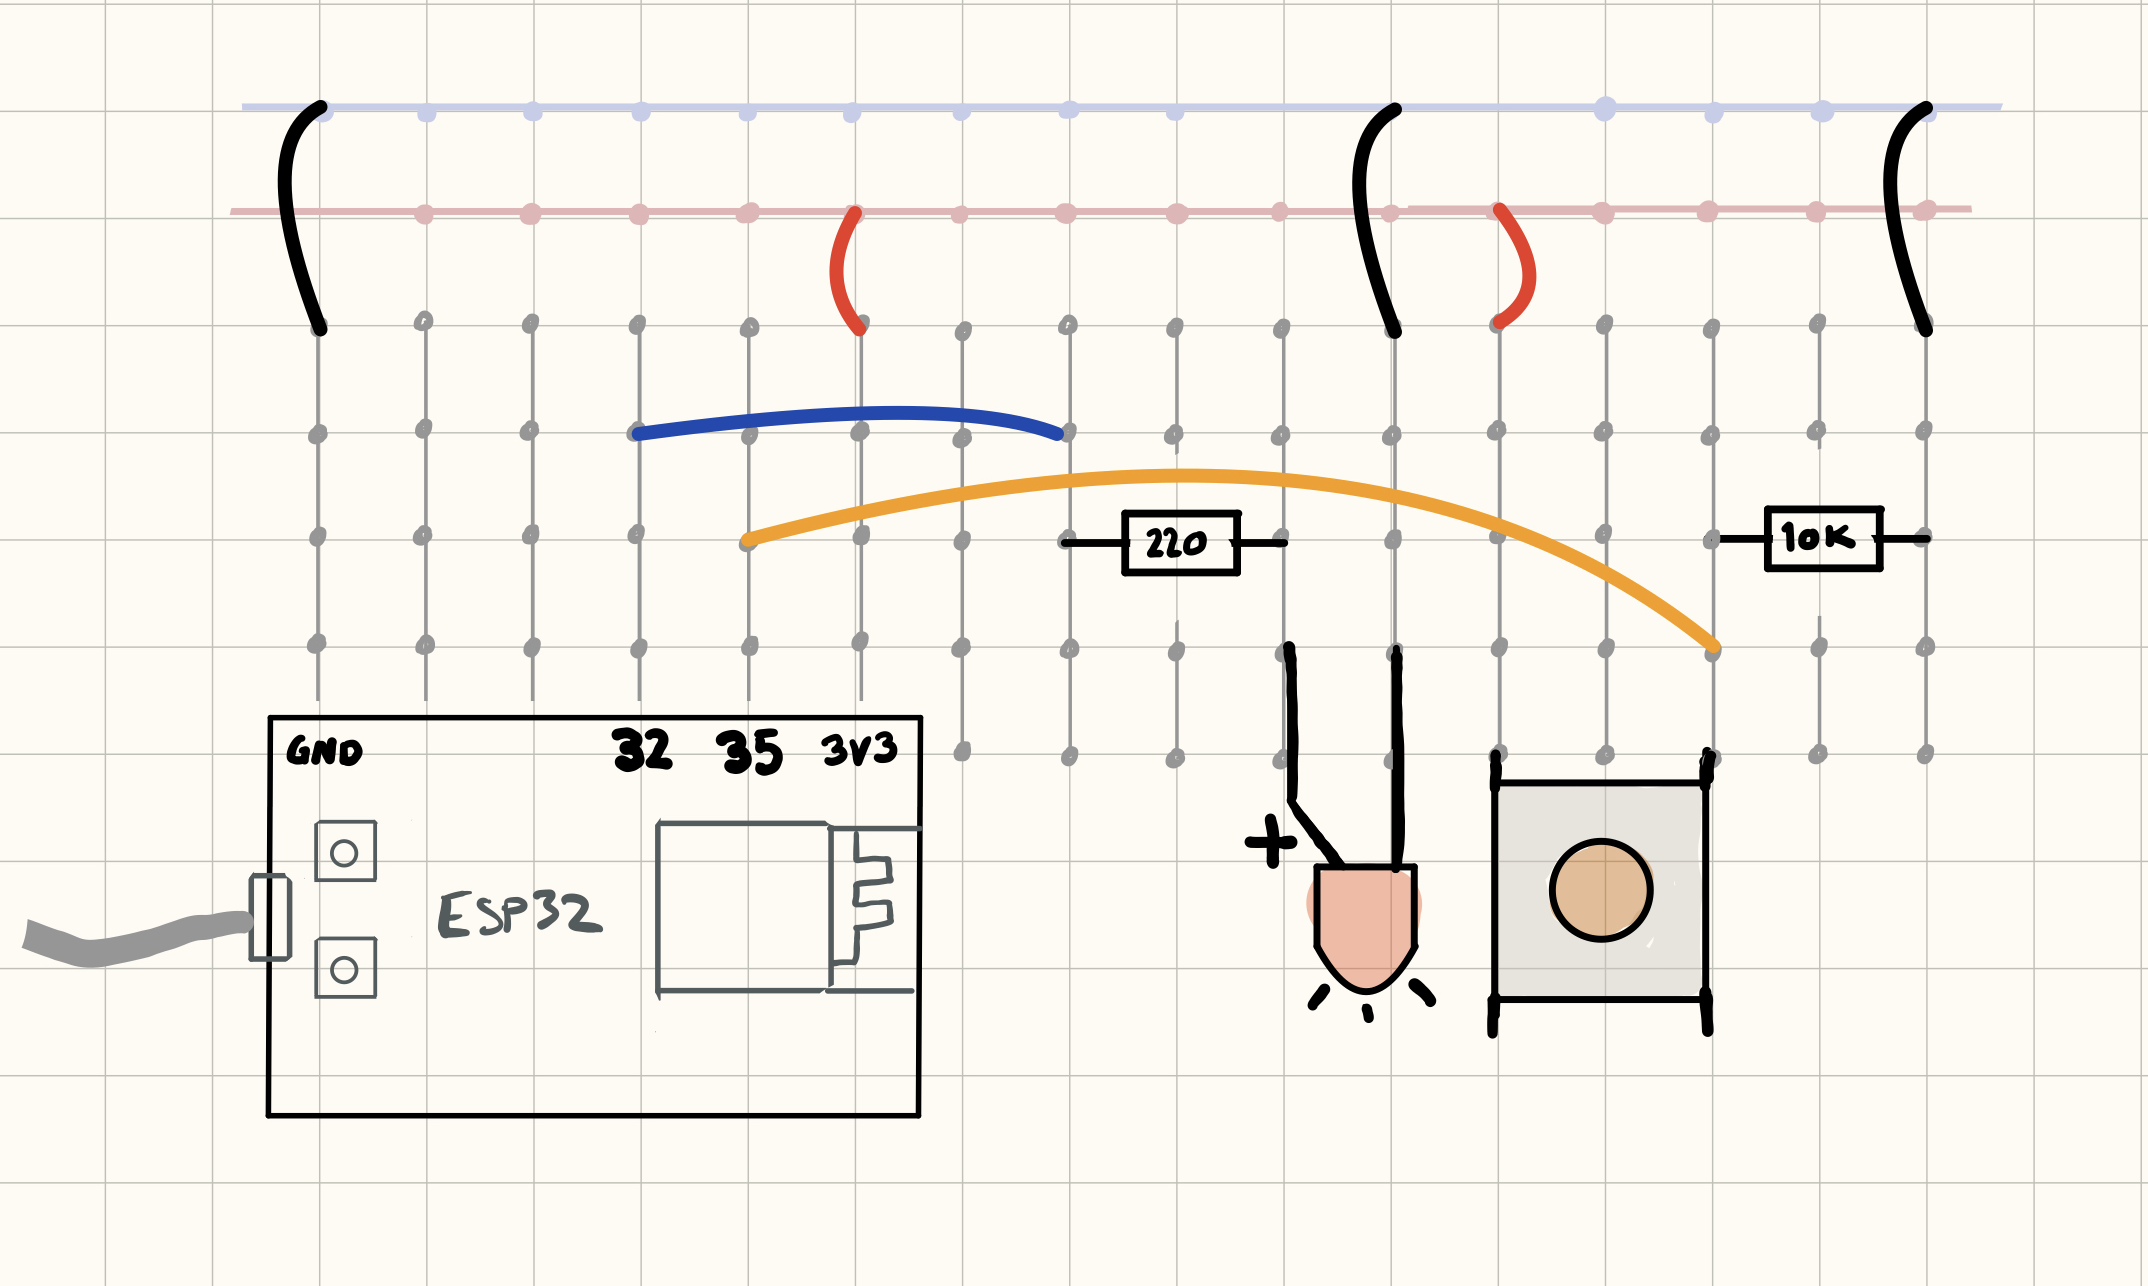 220
10K
GND 32 35 3V3
+
ESP32